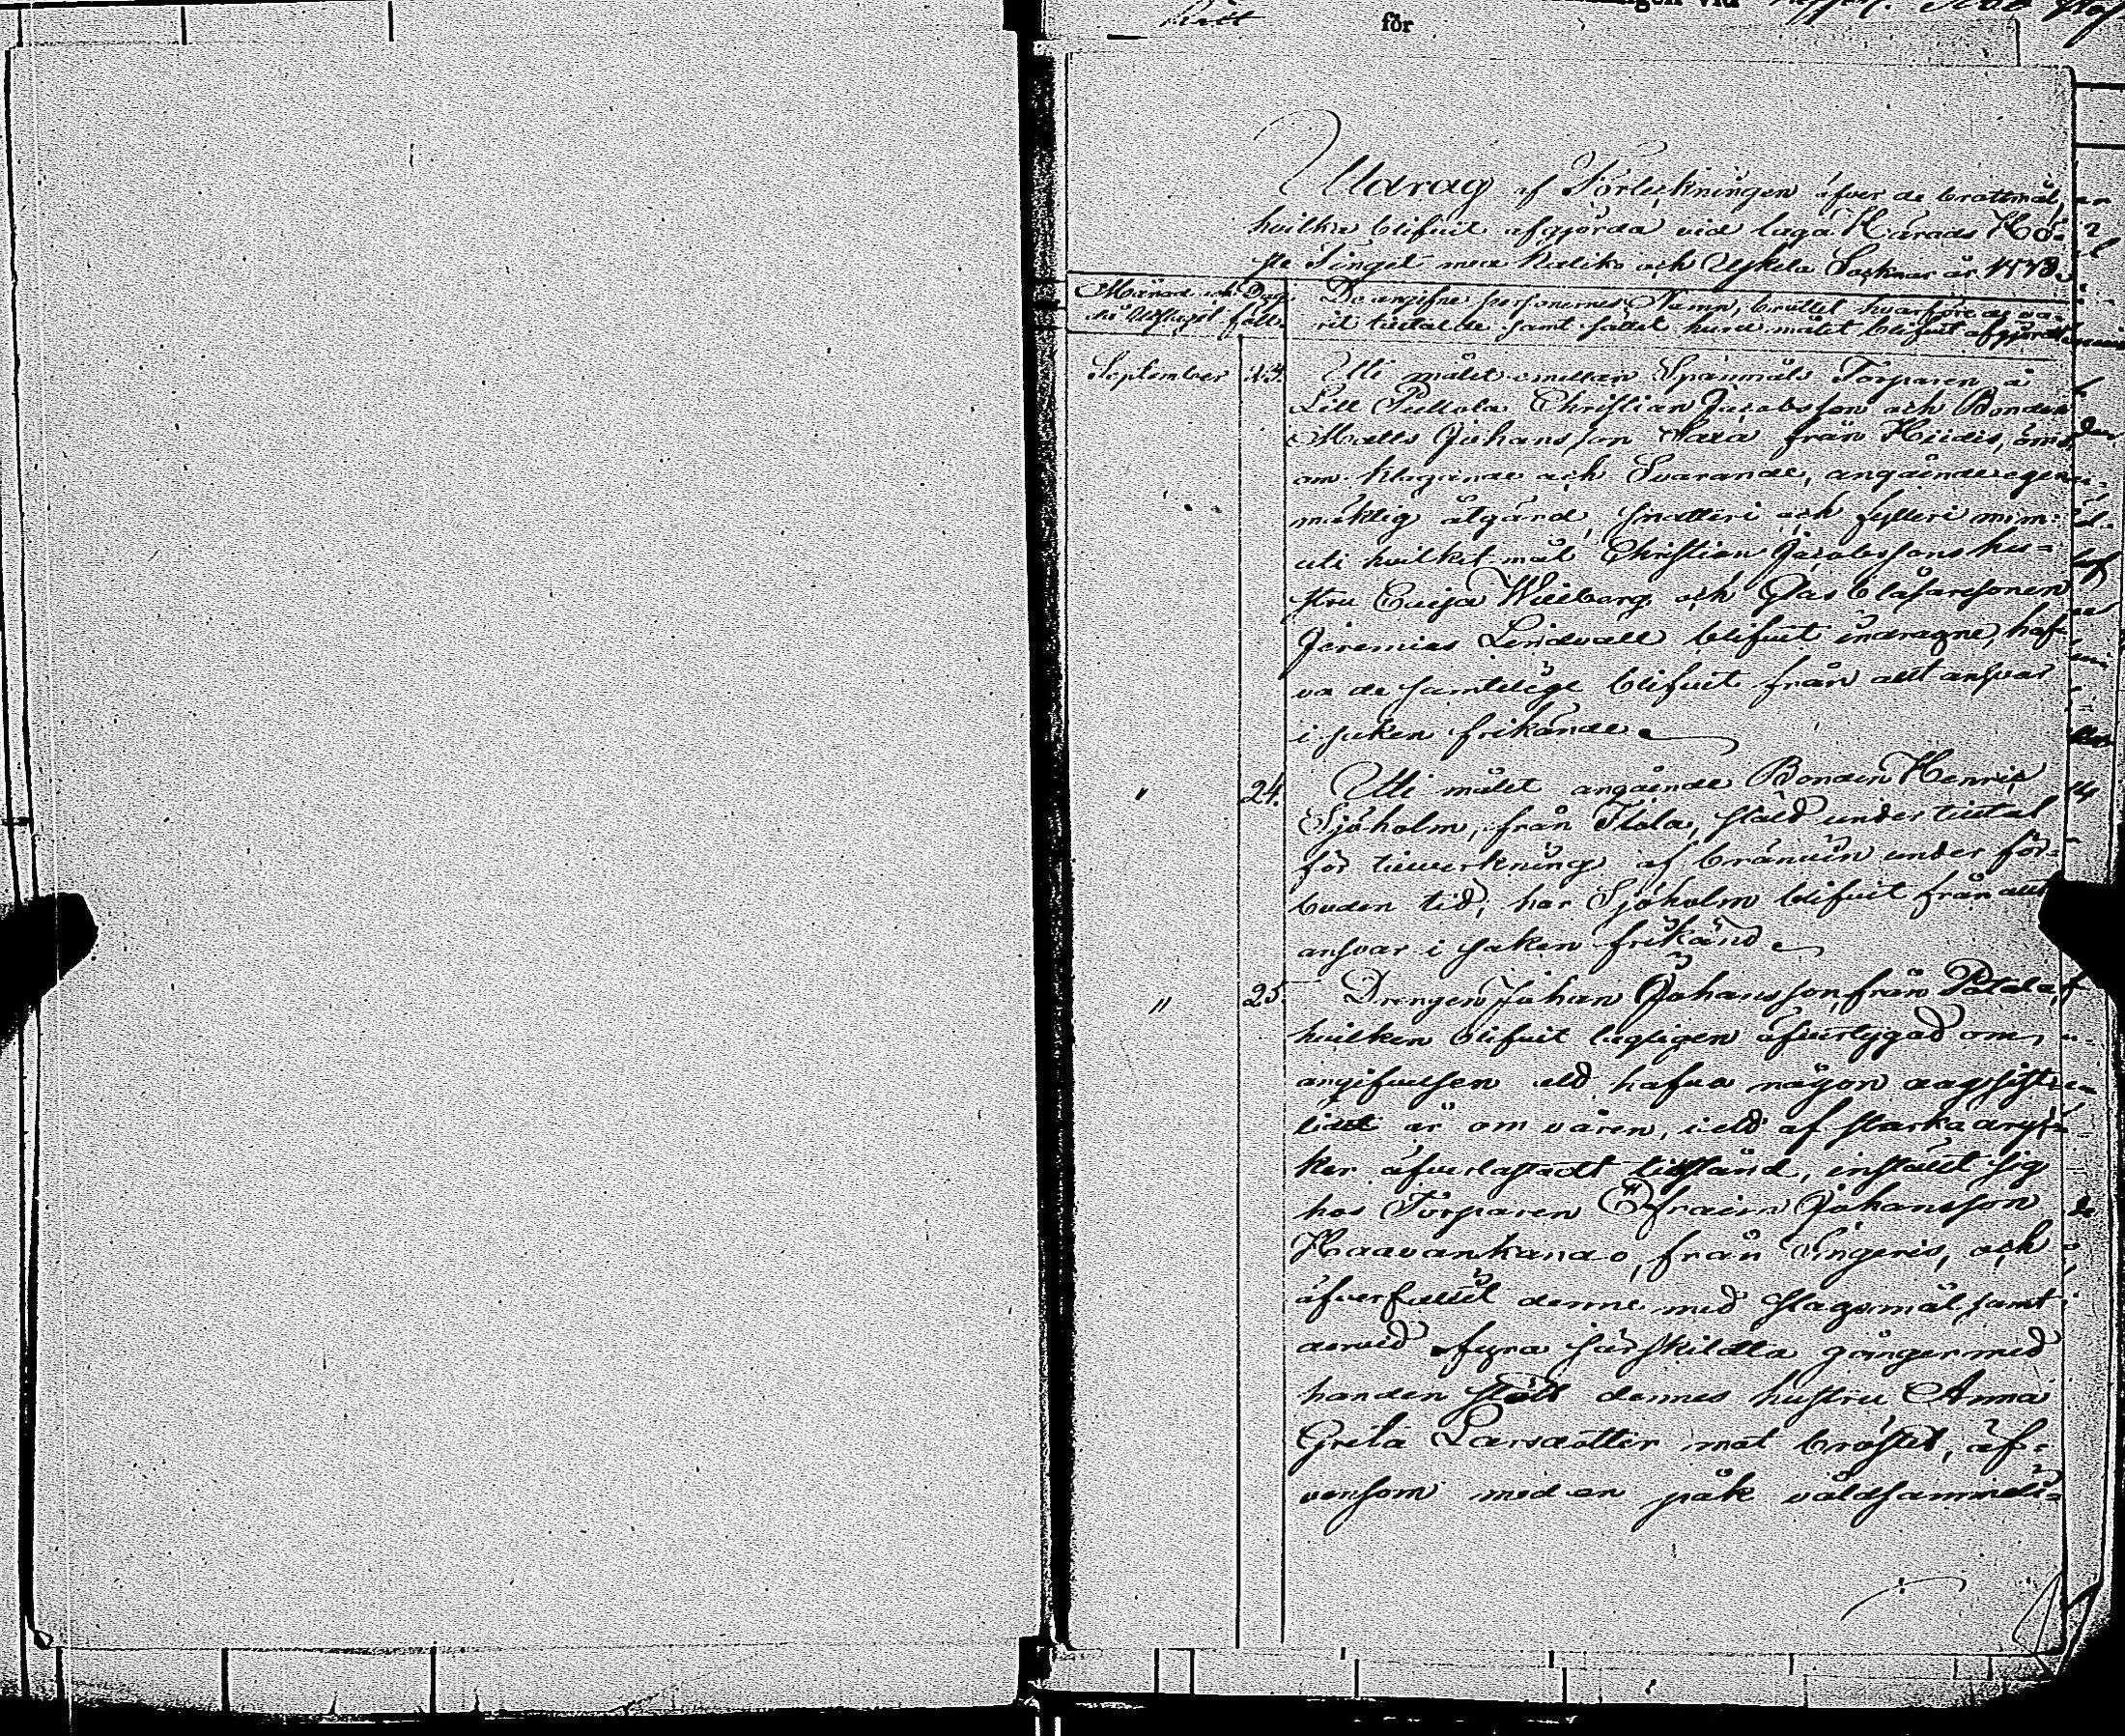 för
Utdrag af Förteckningen öfver de brottmål,
hvilka blifvit afgjorda vid laga Härads Hö-
ste Tinget med Halikko och Uskela Socknar år
Månad och Dag De angifne personernes Namn, brottet hvarföre de va-
då Utslaget fälts. rit tilltalde samt sättet huru målet blifvit afgjordt
September 23. Uti målet emellan Spanmåls Torparen å
Lill Pullola Christian Jacobsson och Bonden
Matts Johansson från Hiidis, öms-
om klagande och Svarande, angående egen-
mäktig åtgärd, snatteri och fylleri m:m:
uti hvilket mål Christian Jacobssons hu-
stru Caisa Wiiborg och Glas blåsaresonen
Jeremias Lindvall blifvit indragne, haf-
va de samtelige blifvit från allt ansvar
i saken frikände.
" 24. Uti målet angående Bonden Henric
Sjöholm, från Isola, stäld under tilltal
för tillverkning af bränvin under för-
buden tid; har Sjöholm blifvit från allt
ansvar i saken frikänd.
" 25. Drengen Johan Johansson, från Pålala,
hvilken blifvit lagligen öfvertygad om,
angifvelsen att hafva någon dag sist-
lidit år om våren, uti af starka dryc-
ker öfverlastadt tillstånd, instält sig
hos Torparen Efraim Johansson
Haavankando, från Vingeris, och
öfverfallit denne med slagsmål, samt
dervid fyra särskildta gånger med
handen stött dennes hustru Anna
Greta Larsdotter mot bröstet, äf-
vensom med en påk våldsammeli-